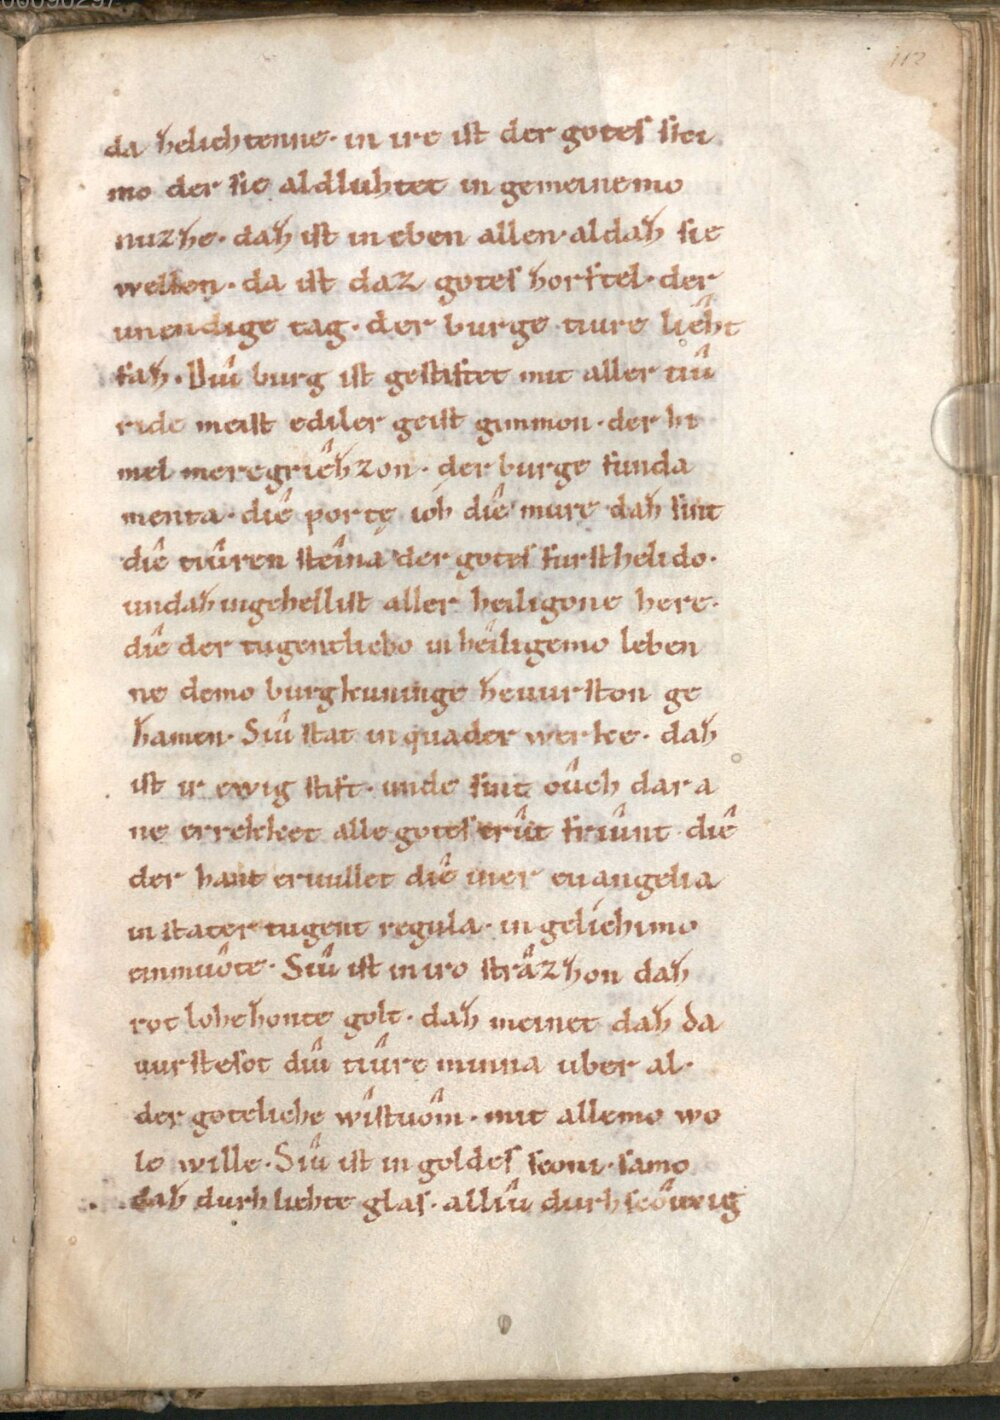 112
da helichtenne· in ire ist der gotes skei
mo der sie aldluhtet in gemeinemo
nuzhe· dah ist in eben allen· aldah sie
wellon· da ist daz gotes horskel· der
unendige tag· der burge tiure lieht
fah· Diû burg ist gestiftet mit aller tiû
ride meist ediler geist gimmon· der hi
mel meregrîehzon· der burge funda
menta· dîe portę ioh dîe mure dah sint
dîe tiûren steîna der gotes fursthelido·
undah ingehellist aller heiligone here·
dîe der tugentliebo in heîligemo leben
ne demo burgkuninge hevurston ge
hamen· Siû stat in quader werke· dah
ist ir ewig stift· unde sint oûch dar a
ne errekket alle gotes trût friûnt dîe
der hant ervullet dîe vier evangelia
in stater tugent regula· in gelichimo
einmuôte· Siû ist in iro strâzhon dah
rot lohehonte golt· dah meinet dah da
vurstesot diû tiûre minna uber al·
der goteliche wîstuôm· mit allemo wo
le wille· Siû ist in goldes sconi· samo
dah durhliehte glas· alliû durhscôuwig